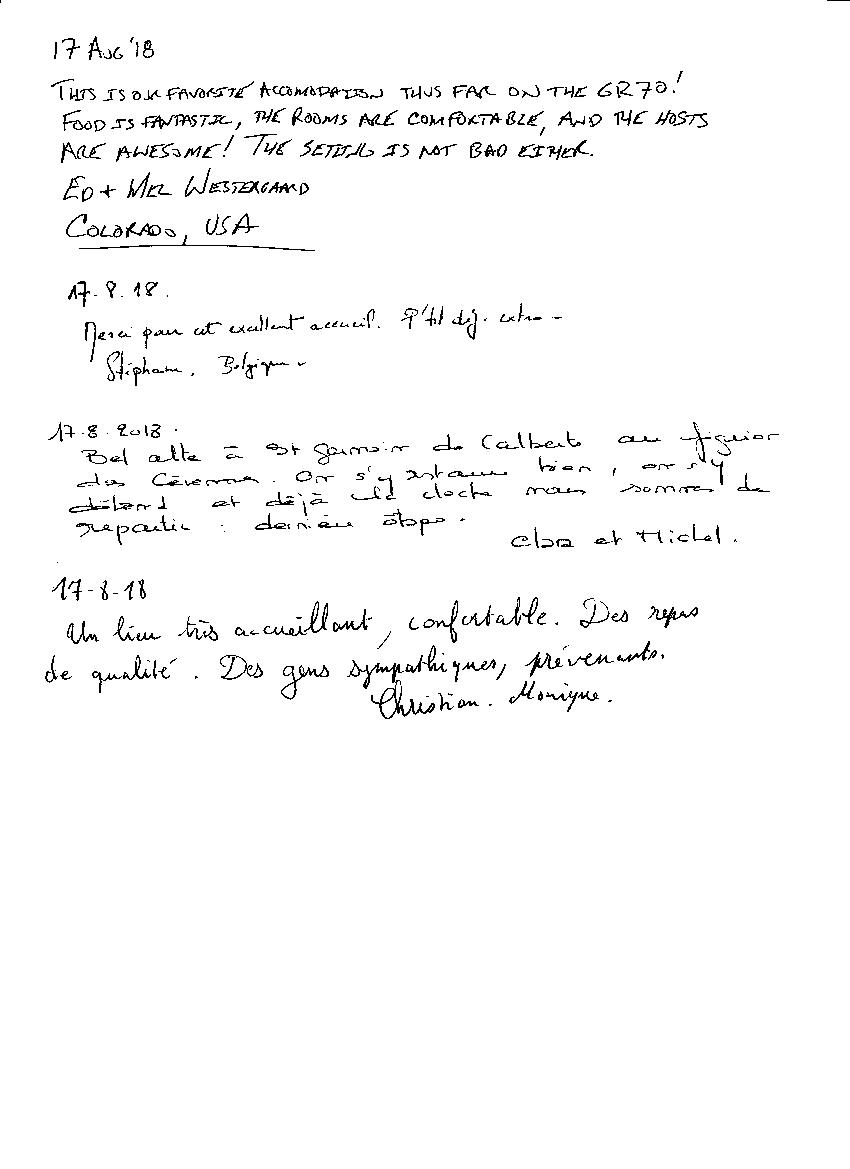 17 AUG '18
THIS IS OUR FAVORITE ACCOMODATION THUS FAR ON THE GR70!
FOOD IS FANTASTIC, THE ROOMS ARE COMFORTABLE, AND THE HOSTS
ARE AWESOME! THE SETTING IS NOT BAD EITHER.
ED + MEL WESTERGAARD
COLORADO, USA
17.8.18.
Merci pour cet excellent accueil. P'tit déj. extra -
Stéphane. Belgique -
17.8.2018.
Bel alte à St Germain de Calberte au figuier
des Cévennes. On s'y restaure bien, on s'y
détend et déjà la cloche nous sommes de
repartir : dernière étape.
Clara et Michel.
17-8-18
Un lieu très accueillant, confortable. Des repas
de qualité. Des gens sympathiques, prévenants.
Christian. Monique.